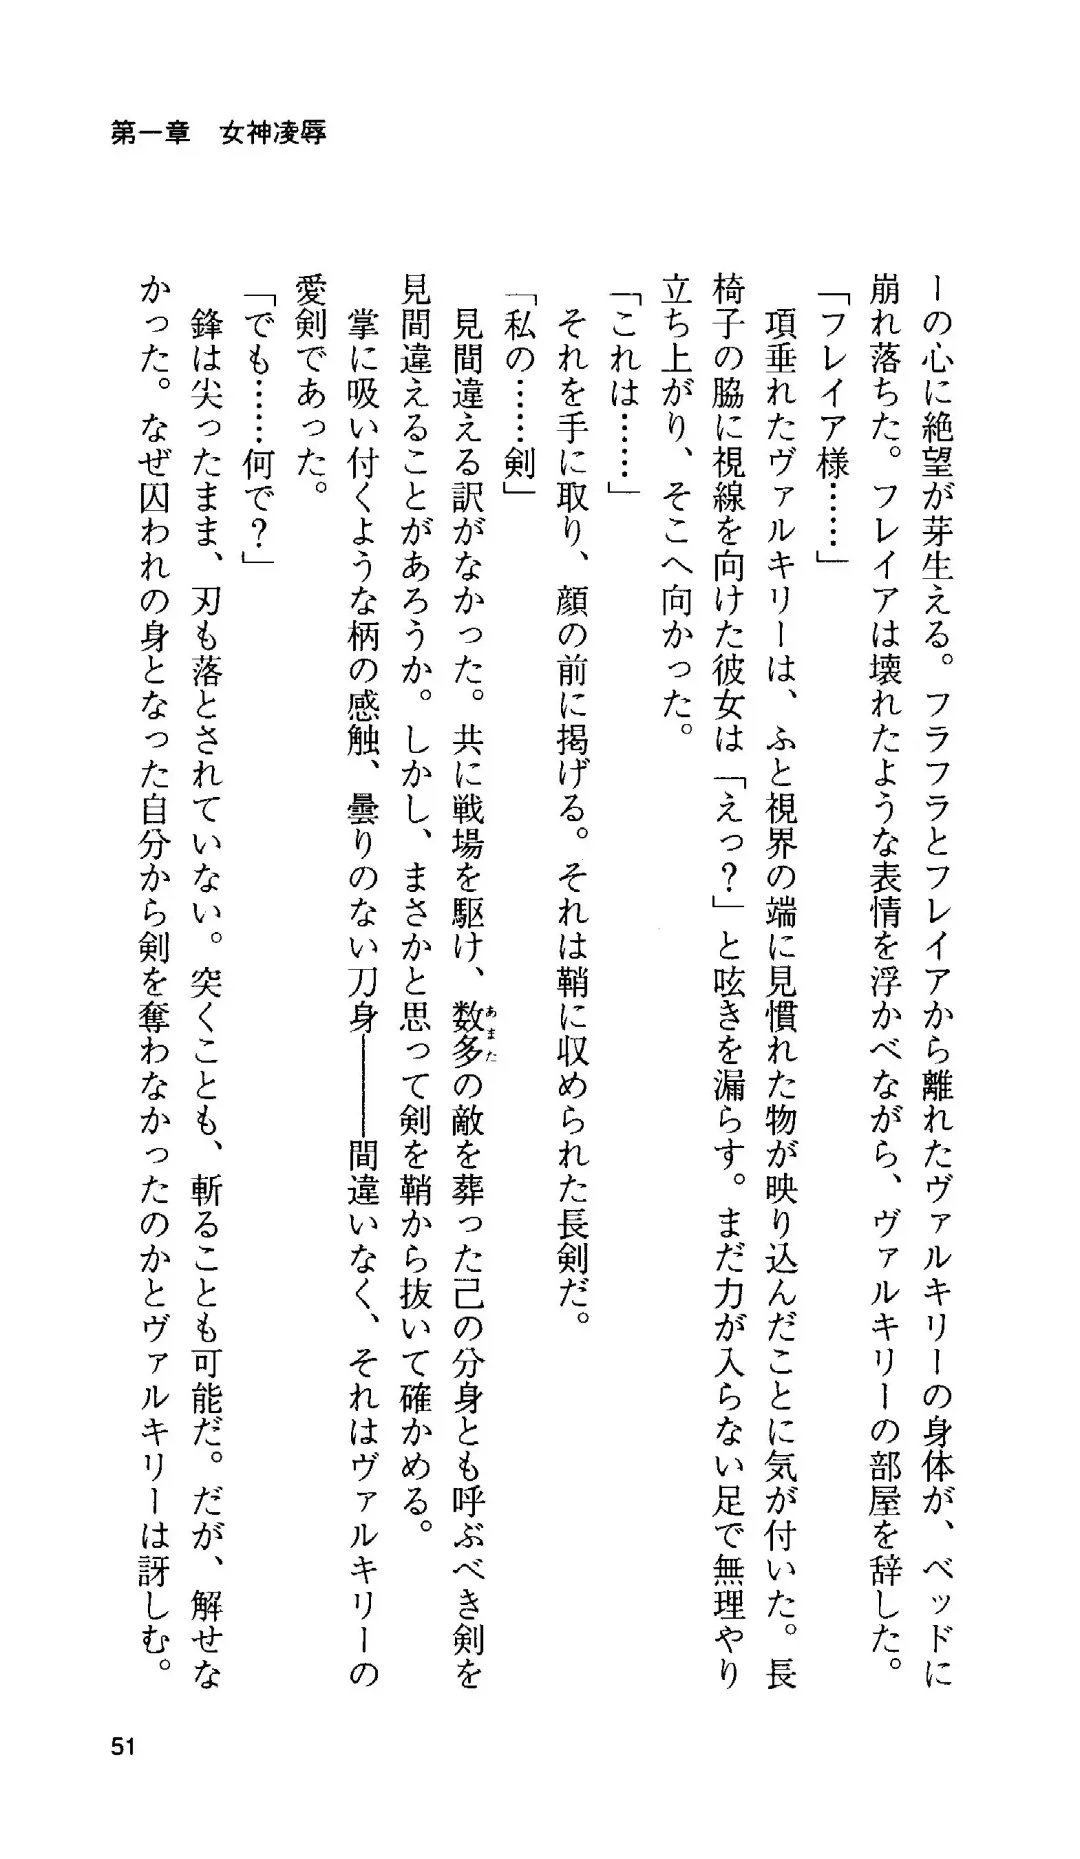 第一章　女神凌辱
ーの心に絶望が芽生える。フラフラとフレイアから離れたヴァルキリーの身体が、ベッドに
崩れ落ちた。フレイアは壊れたような表情を浮かべながら、ヴァルキリーの部屋を辞した。
「フレイア様……」
　項垂れたヴァルキリーは、ふと視界の端に見慣れた物が映り込んだことに気が付いた。長
椅子の脇に視線を向けた彼女は「えっ？」と呟きを漏らす。まだ力が入らない足で無理やり
立ち上がり、そこへ向かった。
「これは……」
　それを手に取り、顔の前に掲げる。それは鞘に収められた長剣だ。
「私の……剣」
　見間違える訳がなかった。共に戦場を駆け、数多の敵を葬った己の分身とも呼ぶべき剣を
あまた
見間違えることがあろうか。しかし、まさかと思って剣を鞘から抜いて確かめる。
　掌に吸い付くような柄の感触、曇りのない刀身――間違いなく、それはヴァルキリーの
愛剣であった。
「でも……何で？」
　鋒は尖ったまま、刃も落とされていない。突くことも、斬ることも可能だ。だが、解せな
かった。なぜ囚われの身となった自分から剣を奪わなかったのかとヴァルキリーは訝しむ。
51